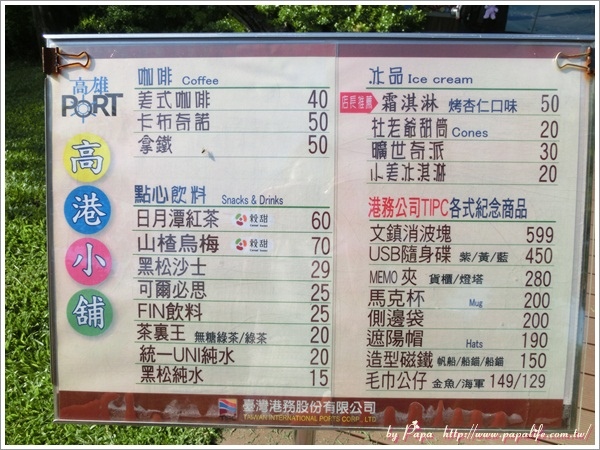 高雄
PORT
高
港
小
舖
咖啡 Coffee
美式咖啡 40
卡布奇諾 50
拿鐵 50
點心飲料 Snacks & Drinks
日月潭紅茶 穀甜 60
山楂烏梅 穀甜 70
黑松沙士 29
可爾必思 25
FIN飲料 25
茶裏王 無糖綠茶/綠茶 20
統一UNI純水 20
黑松純水 15
冰品 Ice cream
店長推薦 霜淇淋 烤杏仁口味 50
杜老爺甜筒 Cones 20
曠世奇派 30
小美冰淇淋 20
港務公司TIPC各式紀念商品
文鎮消波塊 599
USB隨身碟 紫/黃/藍 450
MEMO夾 貨櫃/燈塔 280
馬克杯 Mug 200
側邊袋 200
遮陽帽 Hats 190
造型磁鐵 帆船/船錨/船錨 150
毛巾公仔 金魚/海軍 149/129
臺灣港務股份有限公司
TAIWAN INTERNATIONAL PORTS CORP., LTD
by Papa http://www.papalife.com.tw/